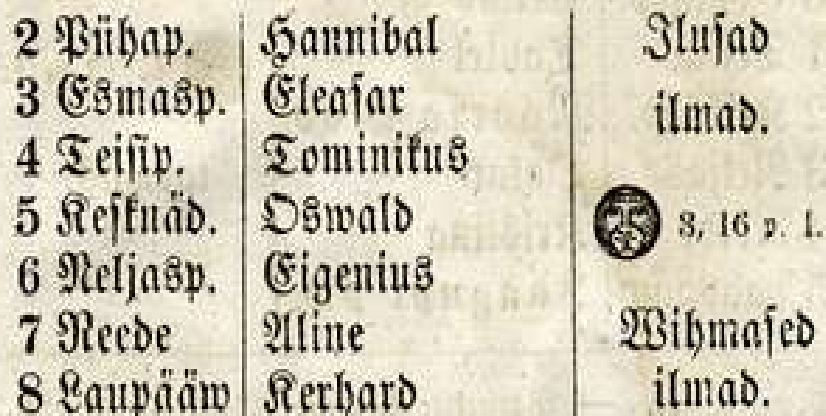 2 Pühap. Hannibal Ilusad
3 Esmasp. Eleasar ilmad.
4 Teisip. Tominikus
5 Kesknäd. Oswald 3, 16 p. l.
6 Neljasp. Eigenius
7 Reede Aline Wihmased
8 Laupääw Kerhard ilmad.